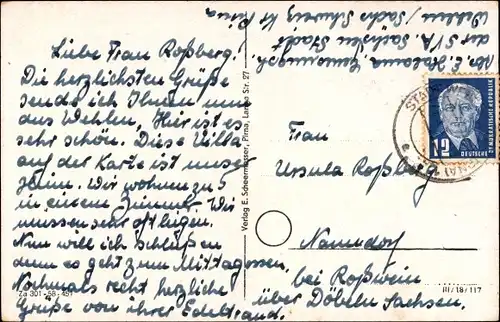 Liebe Frau Roßberg!
Die herzlichsten Grüße
sende ich Ihnen nun
aus Wehlen, Hier ist es
sehr schön. Diese Villa
auf der Karte ist unser
Heim. Wir wohnen zu 5
in einem Zimmer. Wir
müssen sehr oft liegen.
Nun will ich schließen
denn es geht zum Mittagessen,
Nochmals recht herzliche
Grüße von ihrer Edeltraud.
Za 301-58-451
Verlag E. Scheermesser, Pirna, Lange Str. 27
Abs. E.
der SVA. Sächsen Stadt
Wehlen / Sächs Schweiz Kr Pirna
STADT WEHLEN
12
DEUTSCHE
DEMOKRATISCHE REPUBLIK
Frau
Ursula Roßberg
Naundorf
bei Roßwein
über Döbeln Sachsen,
III/18/117